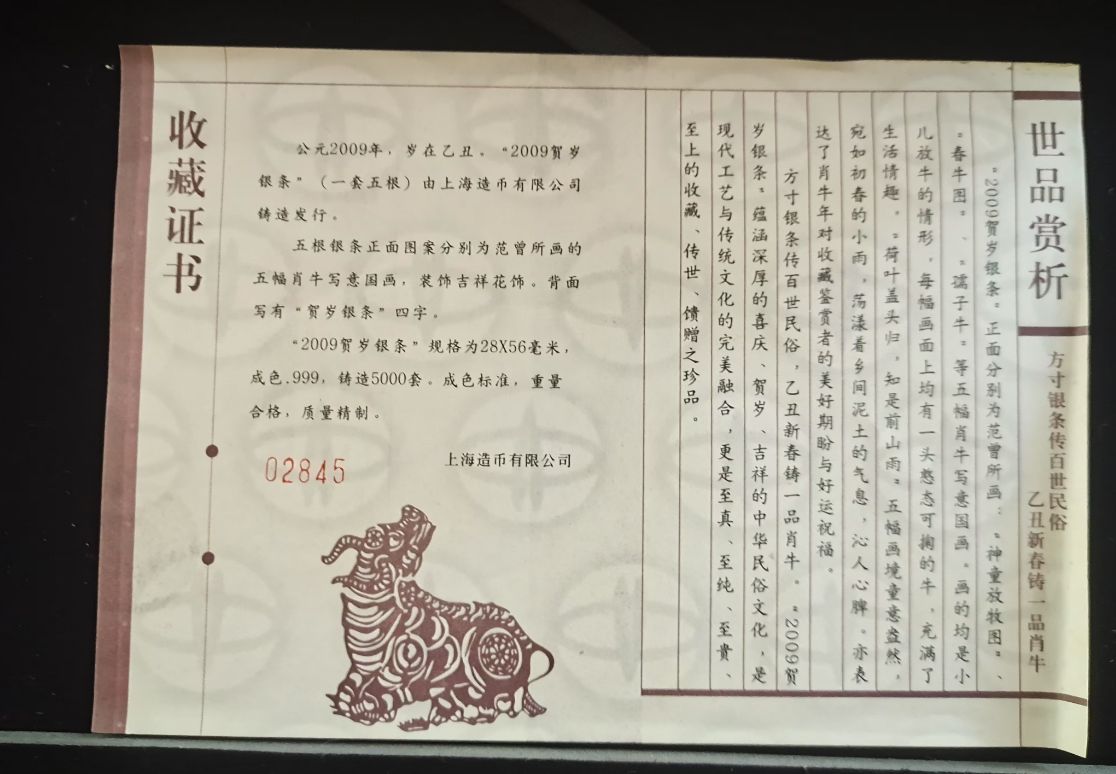 收藏证书
公元2009年，岁在乙丑。“2009贺岁
银条”（一套五根）由上海造币有限公司
铸造发行。
五根银条正面图案分别为范曾所画的
五幅肖牛写意国画，装饰吉祥花饰。背面
写有“贺岁银条”四字。
“2009贺岁银条”规格为28X56毫米，
成色.999，铸造5000套。成色标准，重量
合格，质量精制。
上海造币有限公司
02845
世品赏析
方寸银条传百世民俗
乙丑新春铸一品肖牛
“2009贺岁银条”正面分别为范曾所画：“神童放牧图”、
“春牛图”、“孺子牛”等五幅肖牛写意国画。画的均是小
儿放牛的情形，每幅画面上均有一头憨态可掬的牛，充满了
生活情趣。“荷叶盖头归，知是前山雨”五幅画境童意盎然，
宛如初春的小雨，荡漾着乡间泥土的气息，沁人心脾。亦表
达了肖牛年对收藏鉴赏者的美好期盼与好运祝福。
方寸银条传百世民俗，乙丑新春铸一品肖牛。“2009贺
岁银条”蕴涵深厚的喜庆、贺岁、吉祥的中华民俗文化，是
现代工艺与传统文化的完美融合，更是至真、至纯、至贵、
至上的收藏、传世、馈赠之珍品。